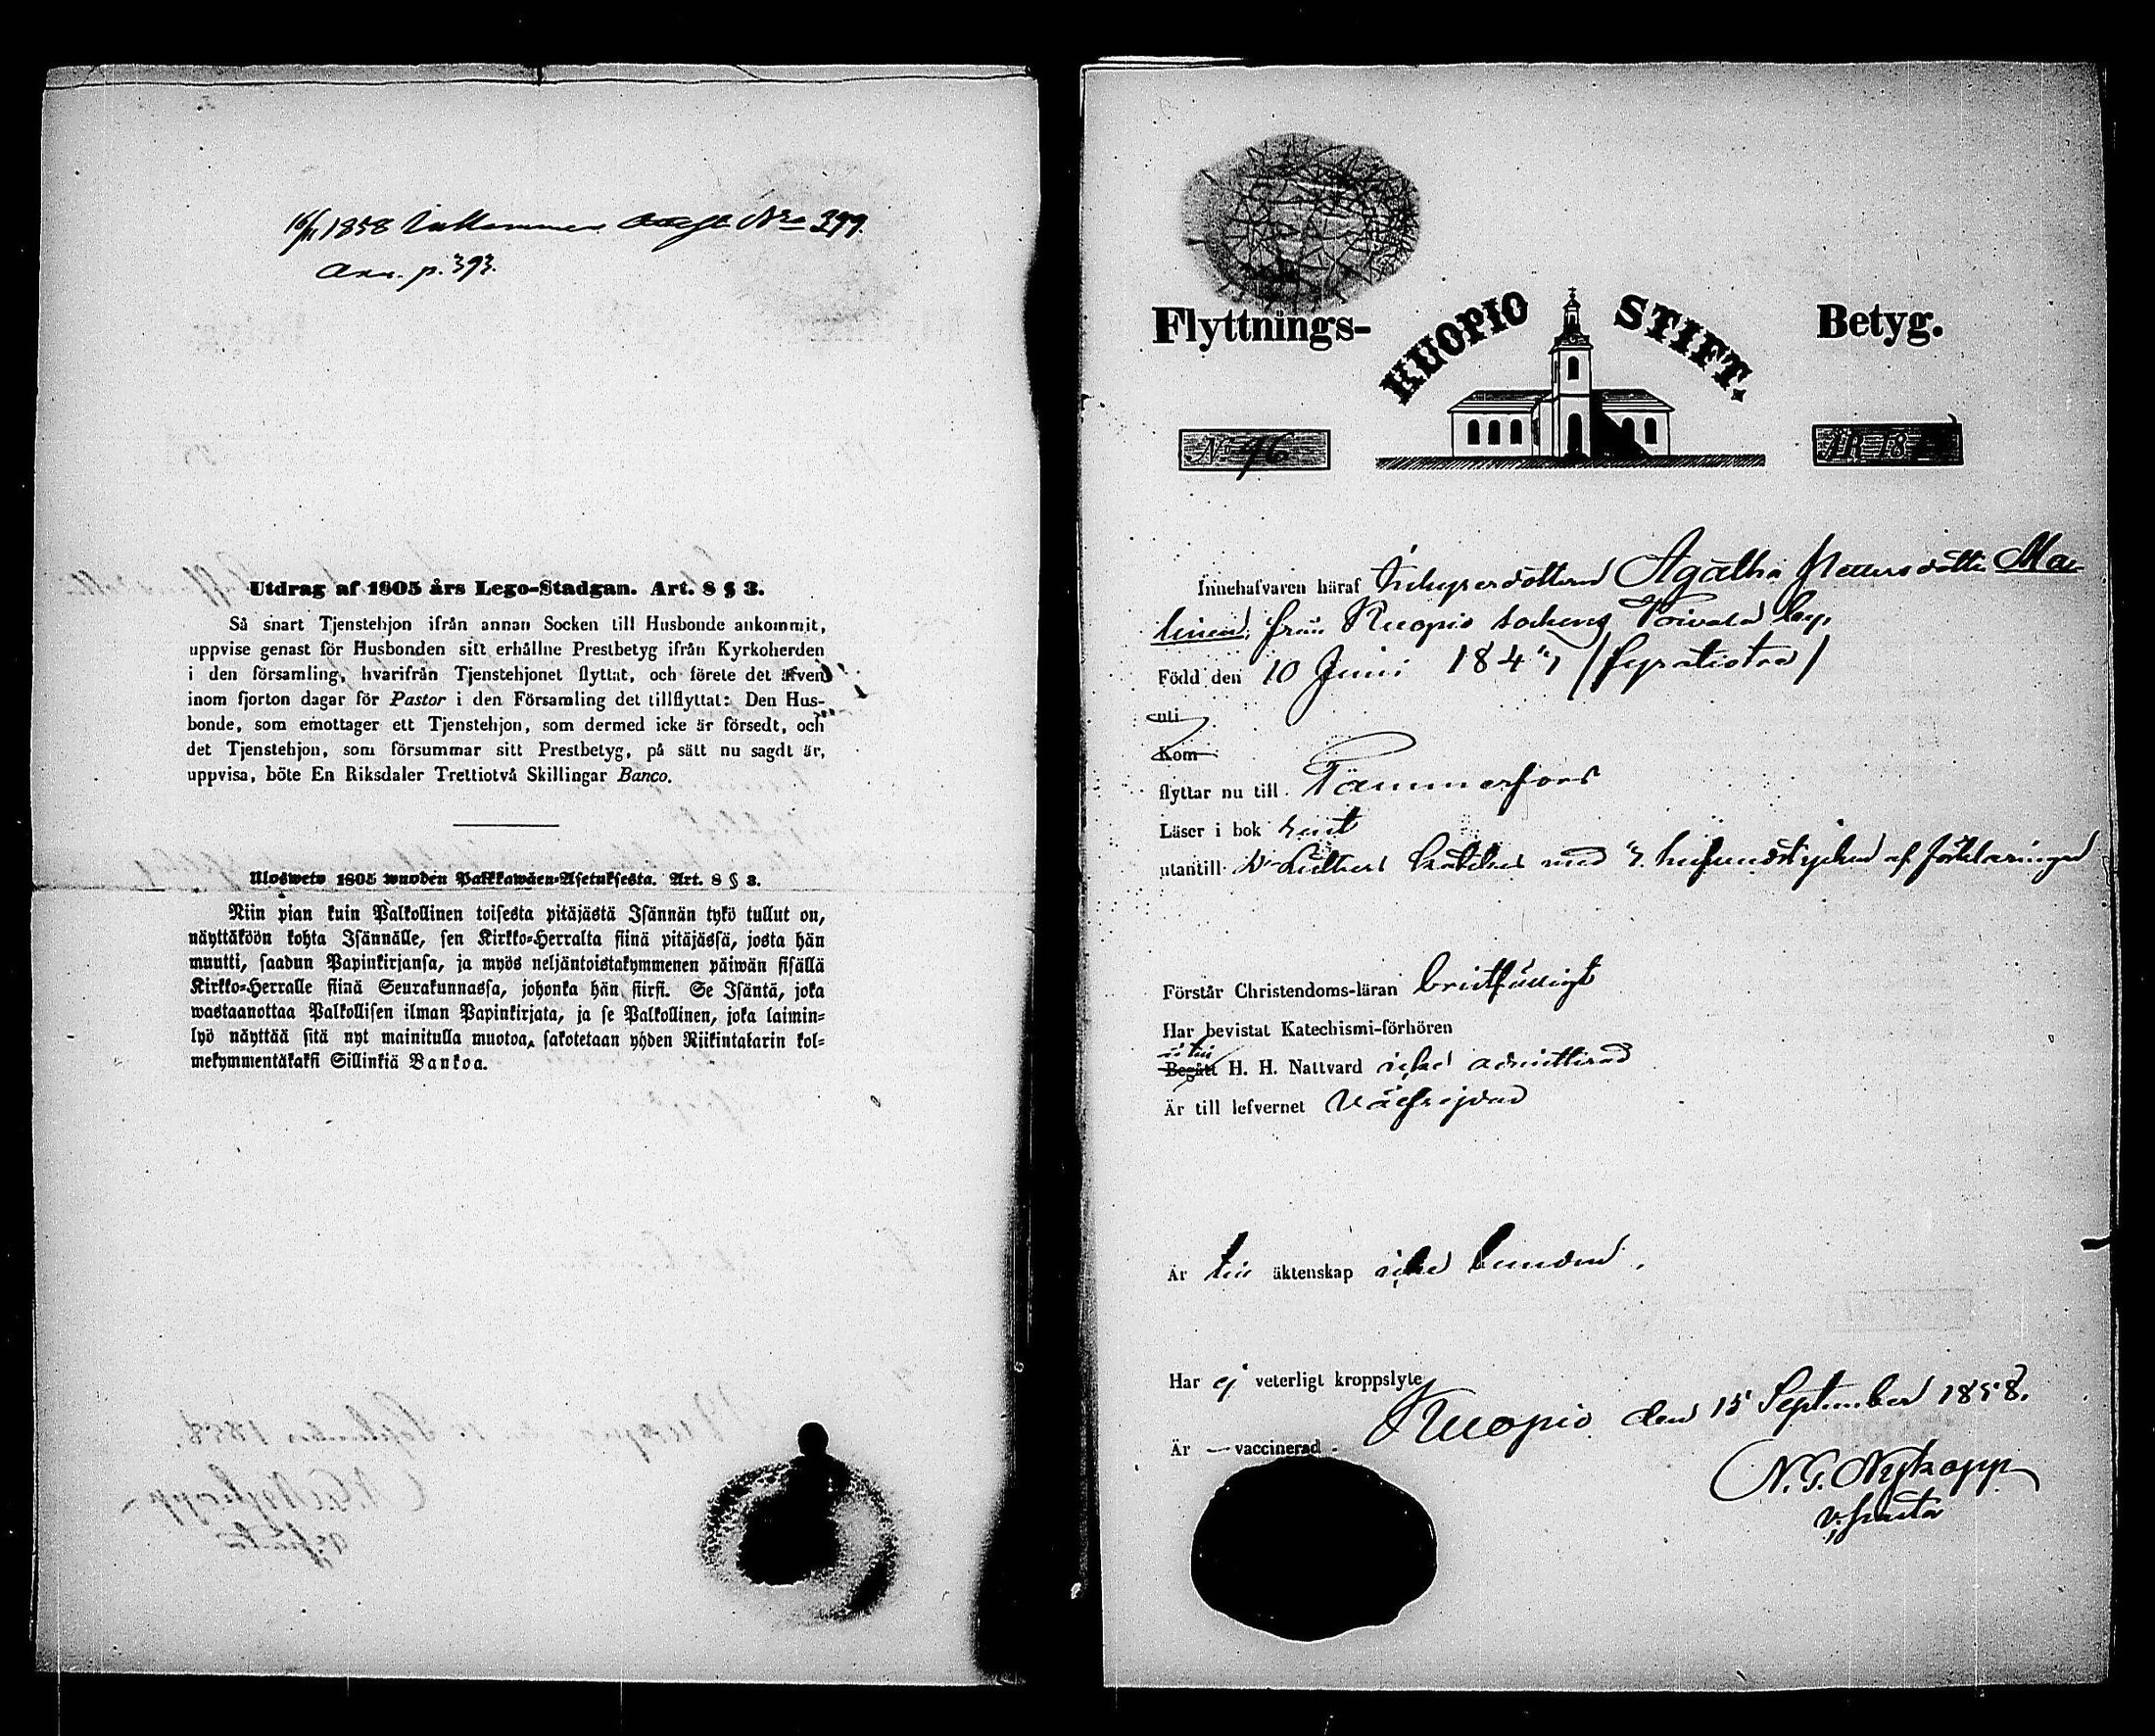 16/11 1858 Inkommen Attest Nro 399.
Ann. p. 393.
Utdrag af 1805 års Lego-Stadgan. Art. 8 § 3.
Så snart Tjenstehjon ifrån annan Socken till Husbonde ankommit,
uppvise genast för Husbonden sitt erhållne Prestbetyg ifrån Kyrkoherden
i den församling, hvarifrån Tjenstehjonet flyttat, och förete det äfven
inom fjorton dagar för Pastor i den Församling det tillflyttat: Den Hus-
bonde, som emottager ett Tjenstehjon, som dermed icke är försedt, och
det Tjenstehjon, som försummar sitt Prestbetyg, på sätt nu sagdt är,
uppvisa, böte En Riksdaler Trettiotvå Skillingar Banco.
Ulosweto 1805 wuoden Palkkawäen-Asetuksesta. Art. 8 § 3.
Niin pian kuin Palkollinen toisesta pitäjästä Isännän tykö tullut on,
näyttäköön kohta Isännälle, sen Kirkko-Herralta siinä pitäjässä, josta hän
muutti, saadun Papinkirjansa, ja myös neljäntoistakymmenen päiwän sisällä
Kirkko-Herralle siinä Seurakunnassa, johonka hän siirsi. Se Isäntä, joka
wastaanottaa Palkollisen ilman Papinkirjata, ja se Palkollinen, joka laimin-
lyö näyttää sitä nyt mainitulla muotoa, sakotetaan yhden Riikintalarin kol-
mekymmentäkaksi Sillinkiä Bankoa.
Flyttnings- KUOPIO STIFT. Betyg.
No 96 ÅR 18
Innehafvaren häraf Inhysesdottren Agatha Pettersdotter
från Kuopio sockens Toivala by,
Född den 10 Juni 1841 /fyratioett/
nti
Kom
flyttar nu till Tammerfors
Läser i bok rent
utantill Dr Luthers Kateches med hufvudstycken af förklaringen
Förstår Christendoms-läran
Har bevistat Katechismi-förhören
är till
Begått H. H. Nattvard icke admitterad
Är till lefvernet välfrejdad
Är till äktenskap icke bunden.
Har ej veterligt kroppslyte
Är — vaccinerad.
Kuopio den 15 September 1858.
N. G. Nykopp